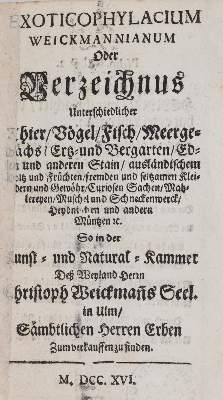 EXOTICOPHYLACIUM
WEICKMANNIANUM
Oder
Verzeichnus
Unterschiedlicher
Thier/Vögel/Fisch/Meerge-
wachs/Ertz- und Bergarten/Ed-
len und anderen Stain/ausländischem
Holtz und Früchten/fremden und seltzamen Klei-
dern und Gewöhr/Curiosen Sachen/Mah-
lereyen/Muschel und Schneckenwerck/
Heydnischen und andern
Müntzen ꝛc.
So in der
Kunst- und Natural-Kammer
Deß Weyland Herrn
Christoph Weickmañs Seel.
in Ulm/
Sämbtlichen Herren Erben
Zum verkauffen zu finden.
M, DCC. XVI.